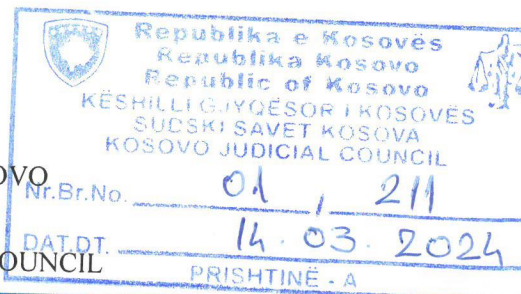 Republika e Kosovës
Republika Kosovo
Republic of Kosovo
KËSHILLI GJYQËSOR I KOSOVËS
SUDSKI SAVET KOSOVA
KOSOVO JUDICIAL COUNCIL
OVO
Nr.Br.No. 01 , 211
DAT.DT. 14.03.2024
OUNCIL
PRISHTINË - A